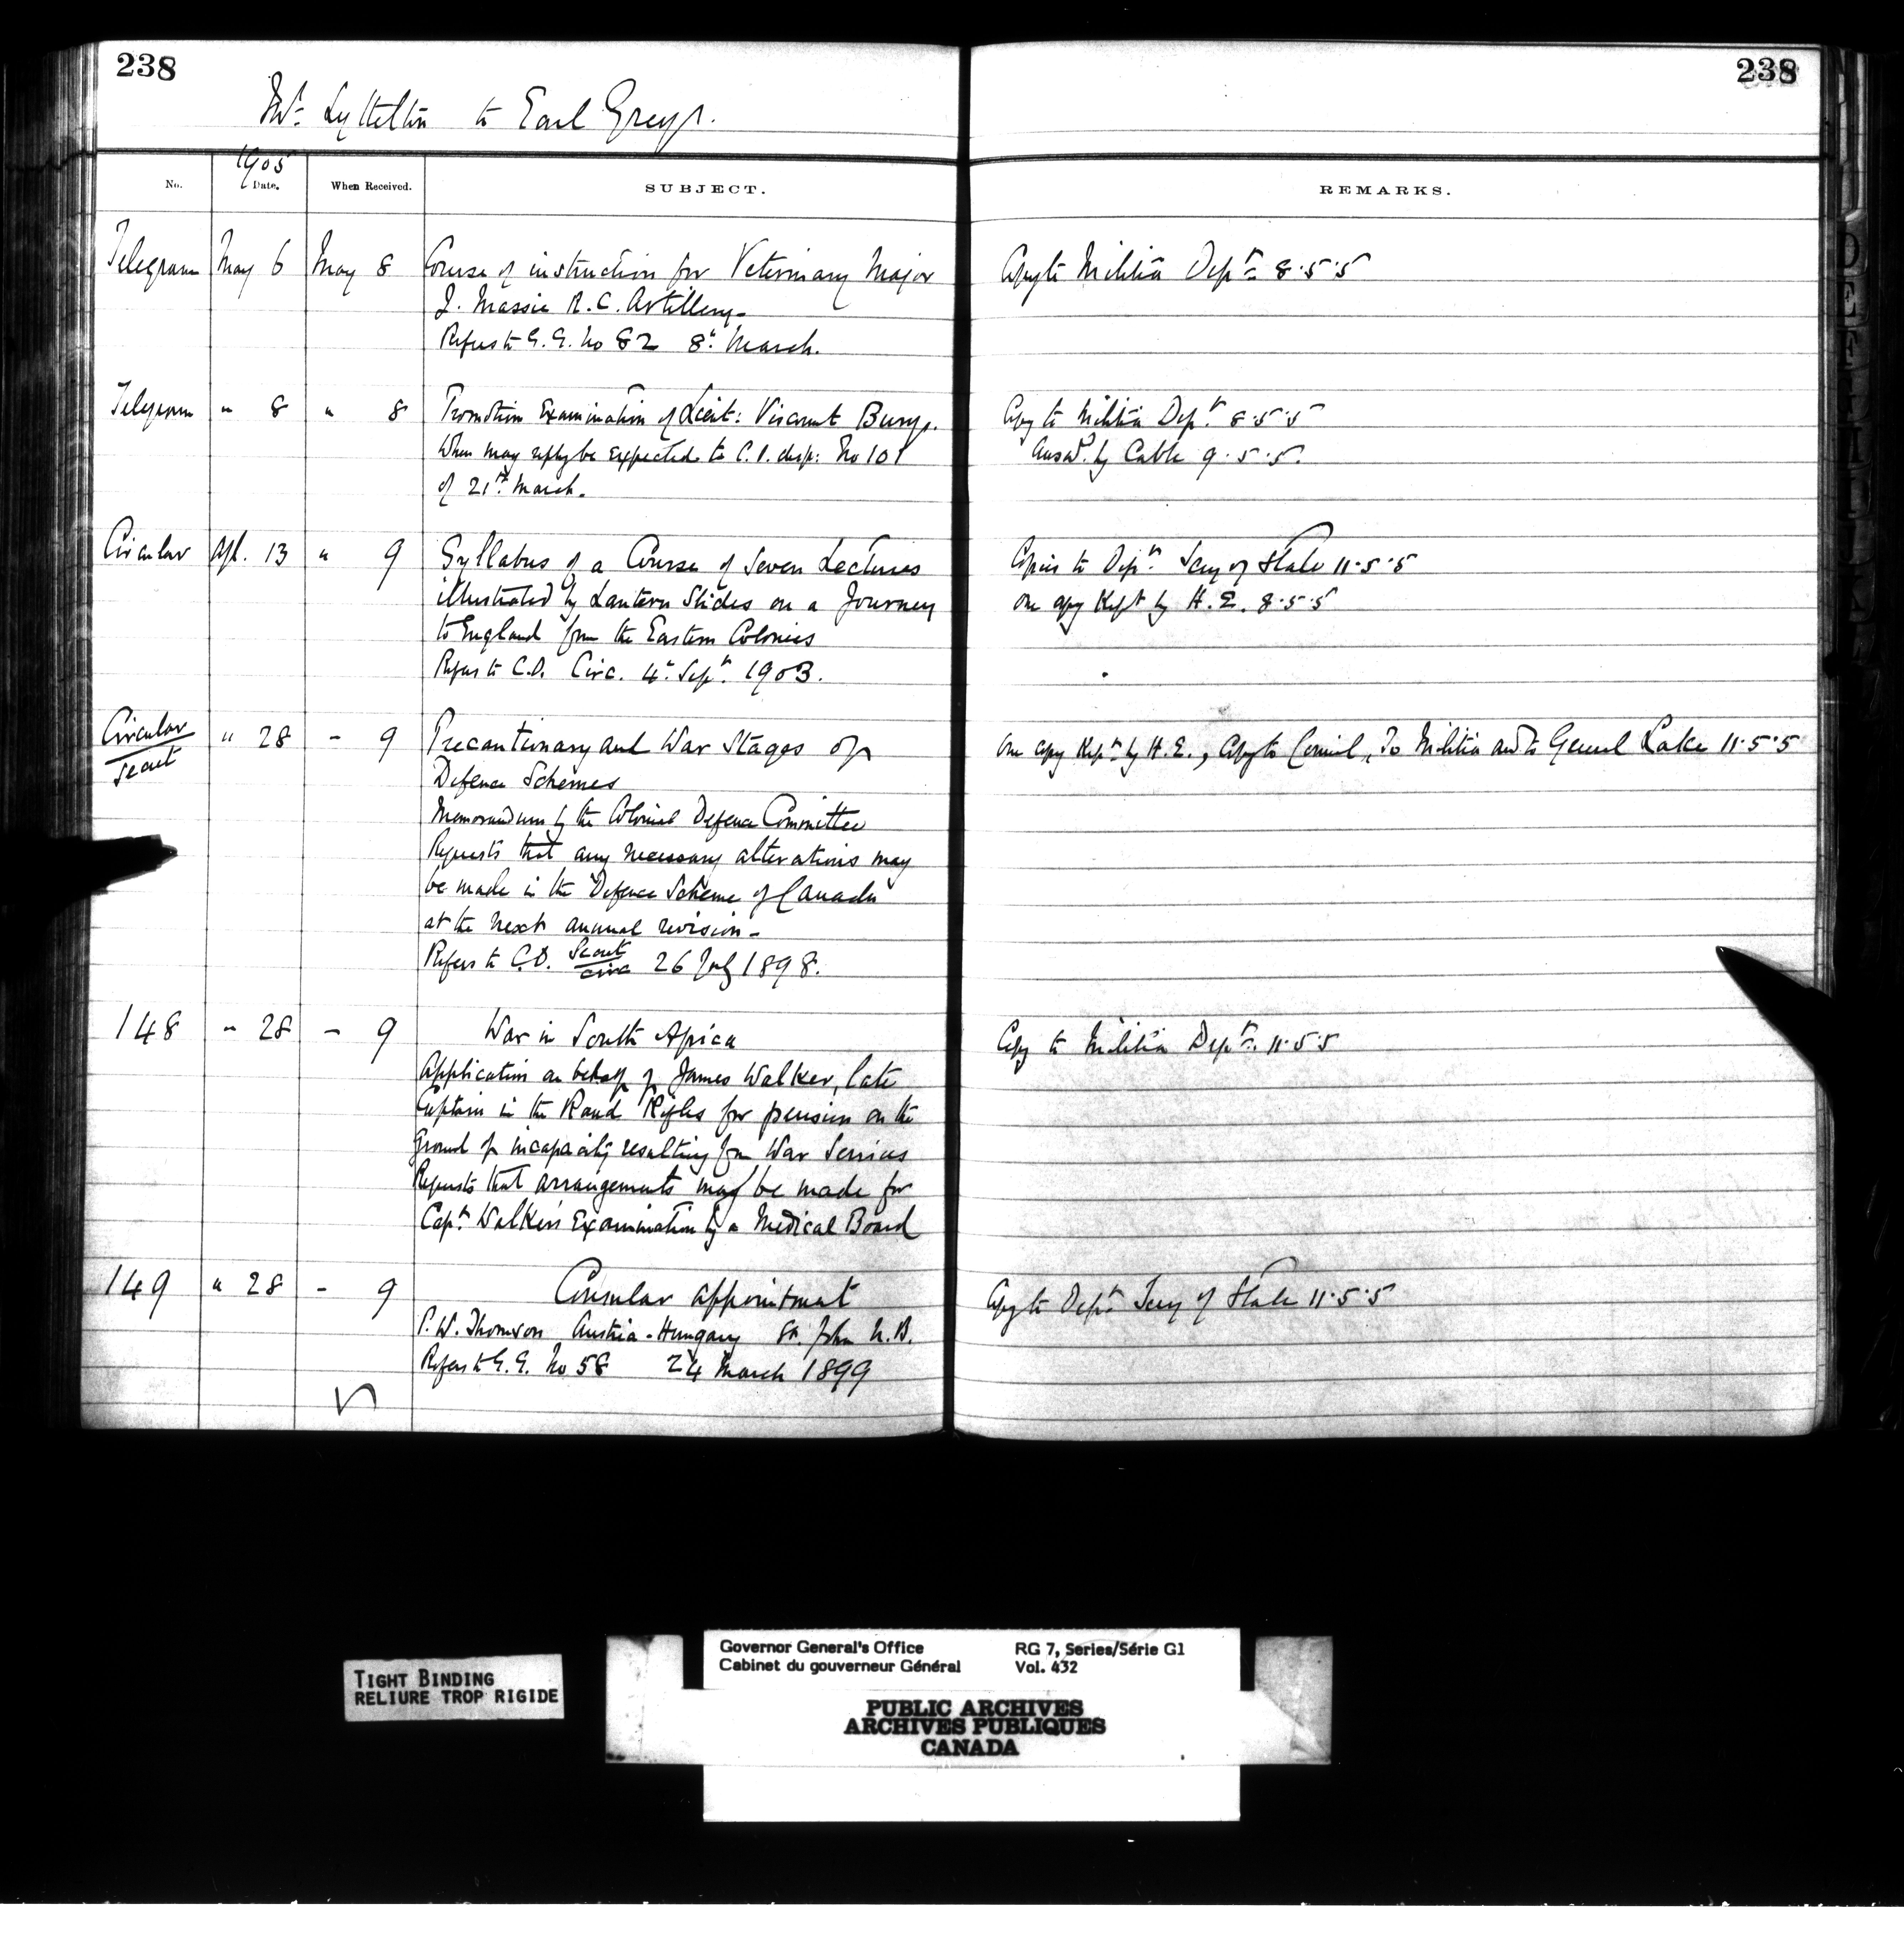 238
238
Mr. Lyttelton to Earl Grey.
1905
No.
Date.
When Received.
SUBJECT.
REMARKS.
Telegram May 6 May 8 Course of instruction for Veterinary Major
J. Massie R.C. Artillery.
Refers to G.G. No 82 8th March.
Copy to Militia Deptt. 8.5.5
Telegram " 8 " 8 Promotion Examination of Lieut: Viscount Bury.
When may reply be expected to C.O. desp: No 101
of 21st March.
Copy to Militia Dept. 8.5.5
Answd. by Cable 9.5.5.
Circular Apl. 13 " 9 Syllabus of a Course of Seven Lectures
illustrated by Lantern Slides on a Journey
to England from the Eastern Colonies
Refers to C.O. Circ. 4th Sept. 1903.
Copies to Dept. Secy of State 11.5.5
One copy Kept by H.E. 8.5.5
Circular
Secret
" 28 - 9 Precautionary and War Stages of
Defence Schemes
Memorandum by the Colonial Defence Committee
Requests that any necessary alterations may
be made in the Defence Scheme of Canada
at the next annual revision -
Refers to C.O. Secret
circ 26 July 1898.
One copy Kept by H.E., Copy to Council, To Militia and to General Lake 11.5.5
148 " 28 - 9 War in South Africa
Application on behalf of James Walker, late
Captain in the Rand Rifles for pension on the
Ground of incapacity resulting from War Services
Requests that arrangements may be made for
Capt. Walker's Examination by a Medical Board
Copy to Militia Dept. 11.5.5
149 " 28 - 9 Consular appointment
P.W. Thomson Austria-Hungary St. John N.B.
Refers to G.G. No 58 24 March 1899
Copy to Dept Secy of State 11.5.5
TIGHT BINDING
RELIURE TROP RIGIDE
Governor General's Office RG 7, Series/Série G1
Cabinet du gouverneur Général Vol. 432
PUBLIC ARCHIVES
ARCHIVES PUBLIQUES
CANADA